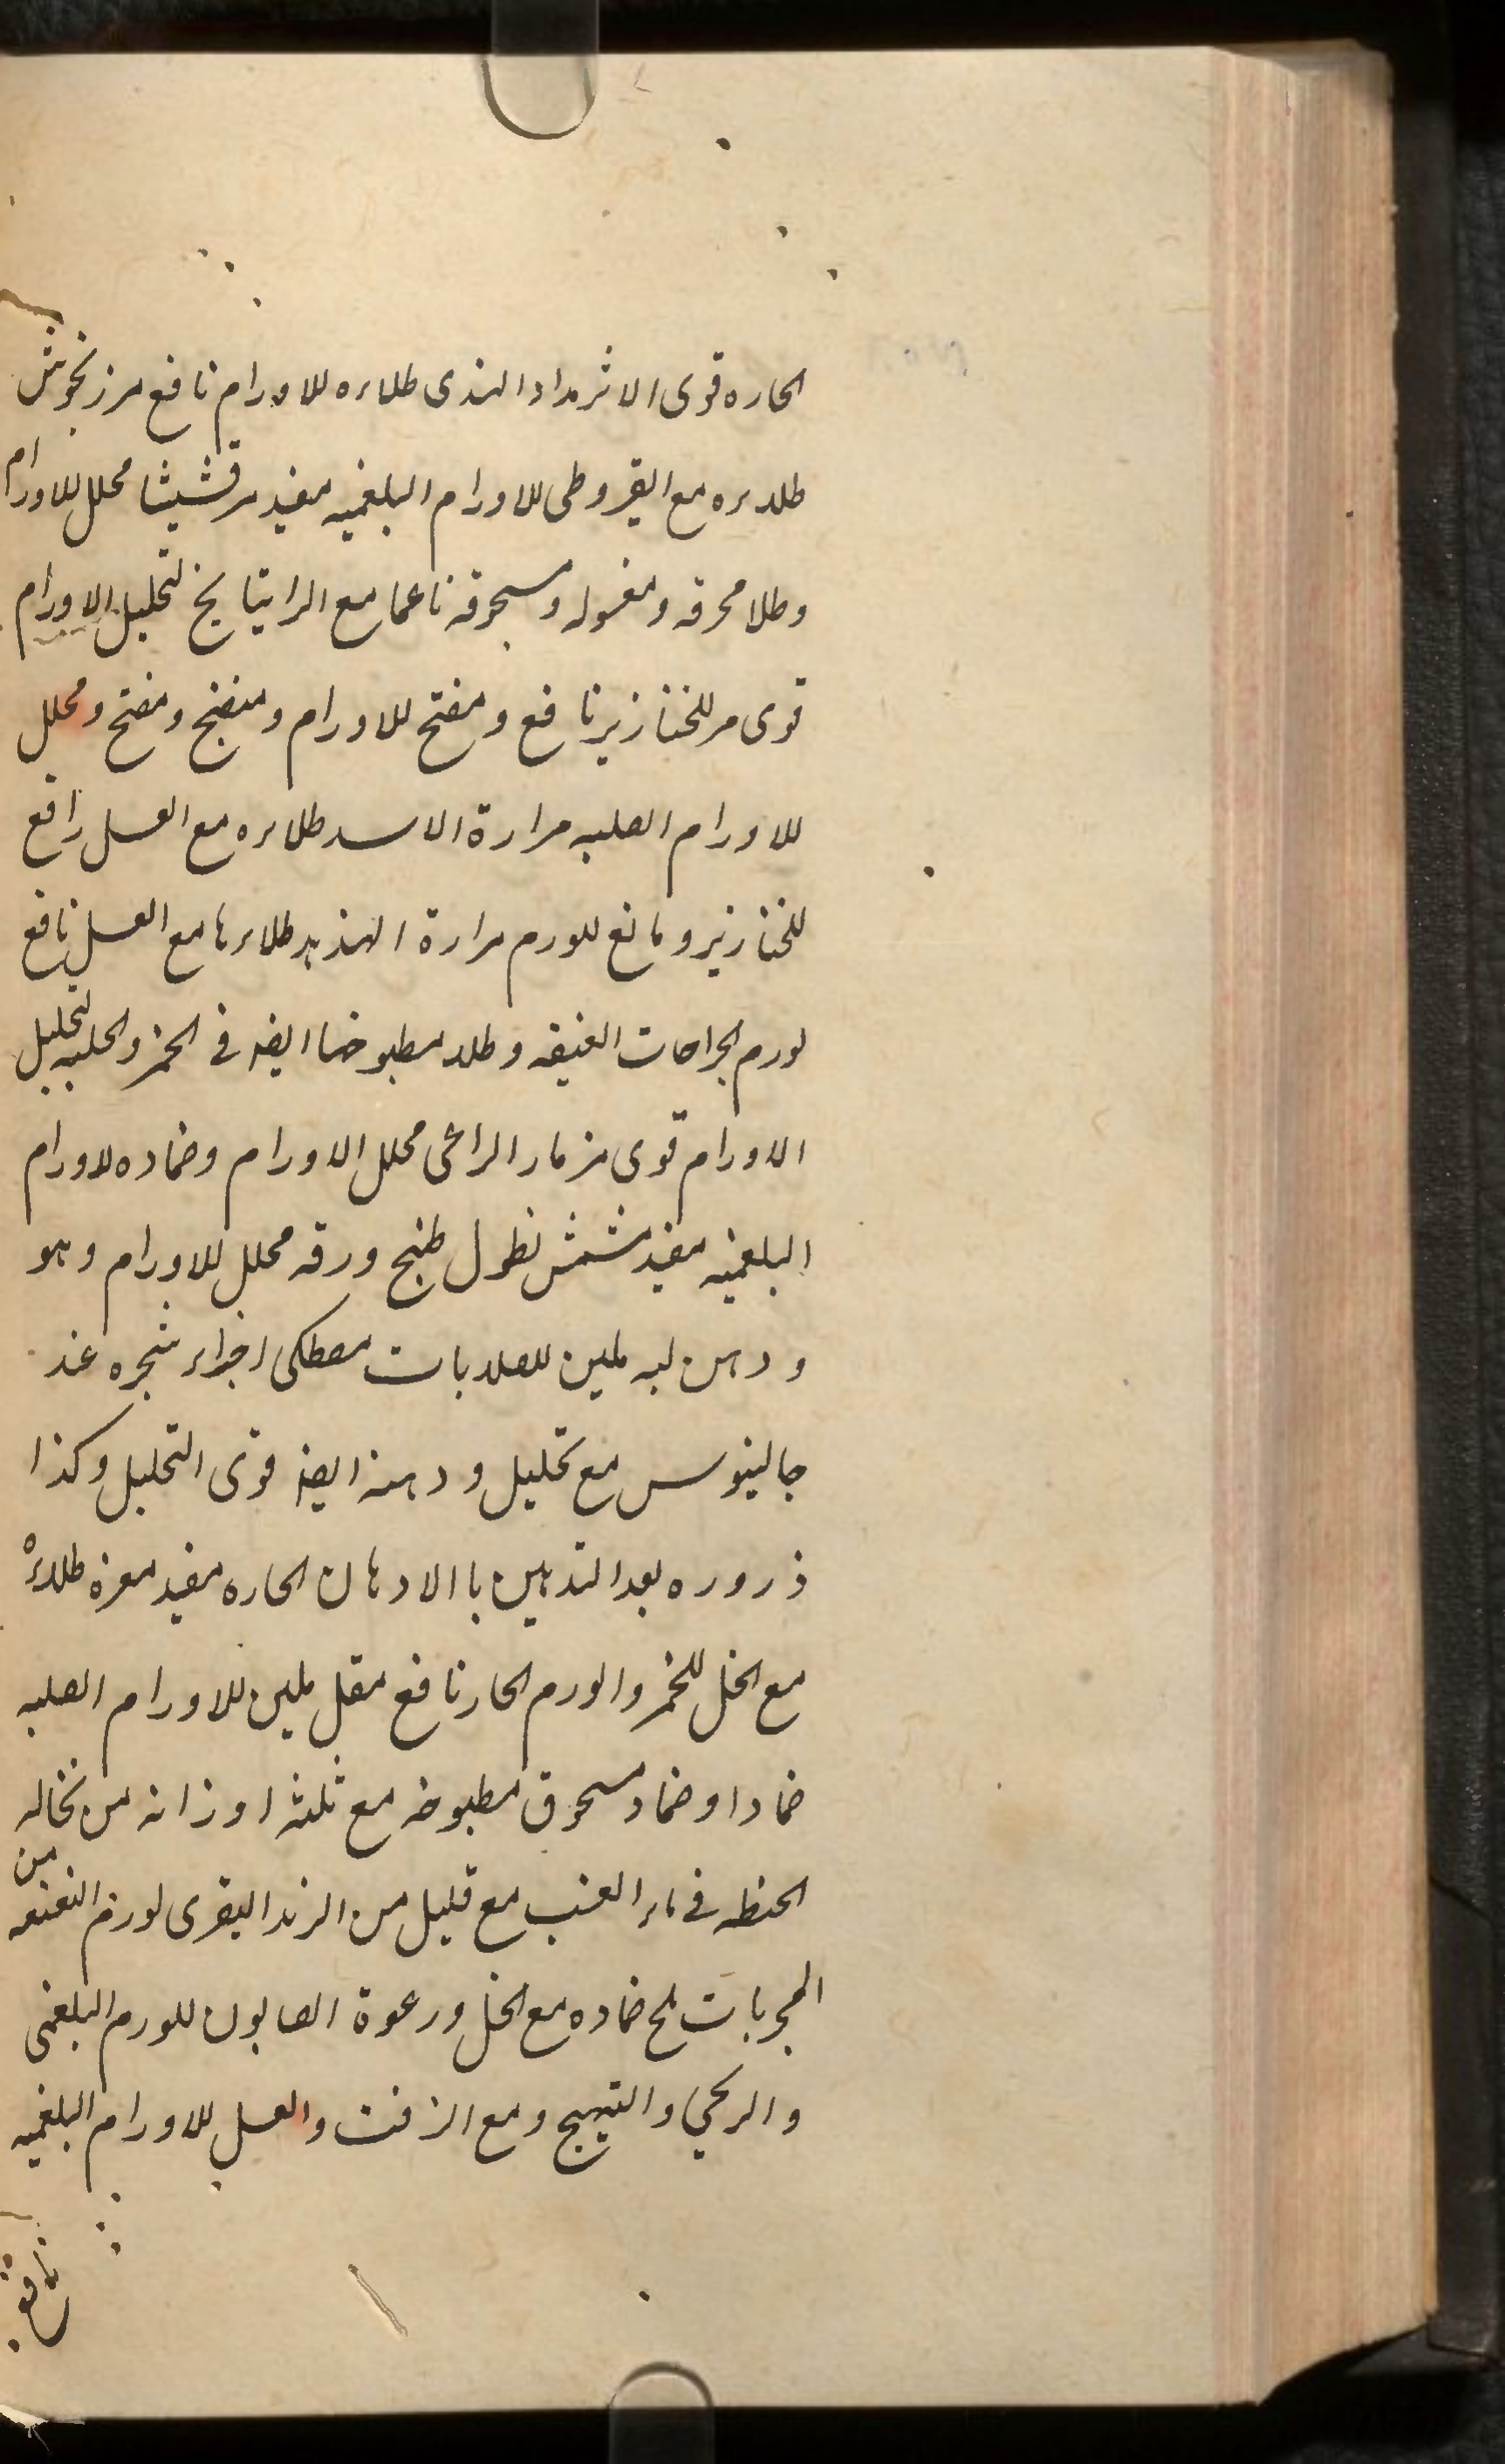 الحاره قوى الاثر مداد الهندى طلاءه للاورام نافع مرزنجوش
طلاءه مع القيروطى للاورام البلغميه مفيد مرقشيثا محلل للاورام
وطلا محرقه ومغسوله ومسحوقه ناعما مع الراتيانج لتحليل الاورام
قوى مر للخنازير نافع ومفتح للاورام ومنضج ومفتح ومحلل
للاورام الصلبه مرارة الاسد طلاءه مع العسل رافع
للخنازير ومانع للورم مرارة طلاءها مع العسل نافع
لورم الجراحات العتيقه وطلا مطبوخا ايضا فى الخمر والحلبه لتحليل
الاورام قوى مزمار الراعى محلل الاورام وضماده لاورام
البلغميه مفيد مشمش نطول طبخ ورقه محلل للاورام وهو
ودهن لبه ملين للصلابات مصطكى اجزاء شجره عند
جالينوس مع تحليل ودهنه ايضا قوى التحليل وكذا
ذروره بعد التدهين باالادهان الحاره مفيد مغره طلاءه
مع الخل للخمر والورم الحار نافع مقل ملين للاورام الصلبه
ضمادا وضماد مسحوق مطبوخه مع ثلثه اوزانه من نخاله
الحنطه فى ماء العنب مع قليل من الزبد البقرى لورم من
المجربات ملح ضماده مع الخل ورغوة الصابون للورم البلغمى
والريحى والتهيج ومع الزفت والعسل للاورام البلغميه
نافع